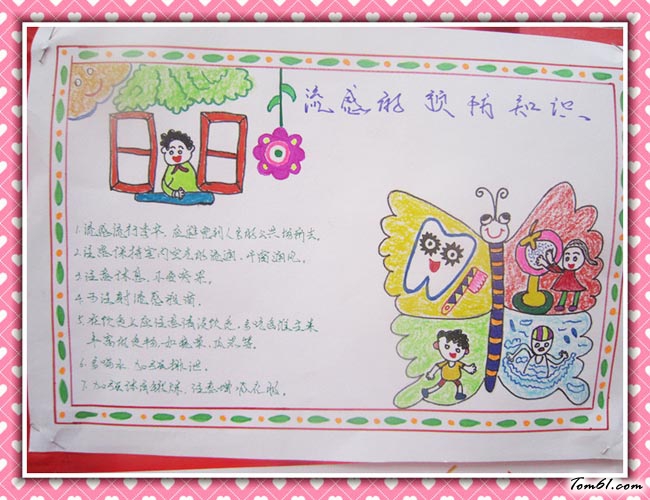 流感的预防知识
1.流感流行季节，应避免到人多的公共场所去。
2.注意保持室内空气的流通，开窗通风。
3.注意休息，不要疲累。
4.可注射流感疫苗。
5.在饮食上应注意清淡饮食，多吃含维生素
丰富的食物如蔬菜、瓜果等。
6.多喝水，加强排泄。
7.加强体育锻炼，注意增减衣服。
Tom61.com